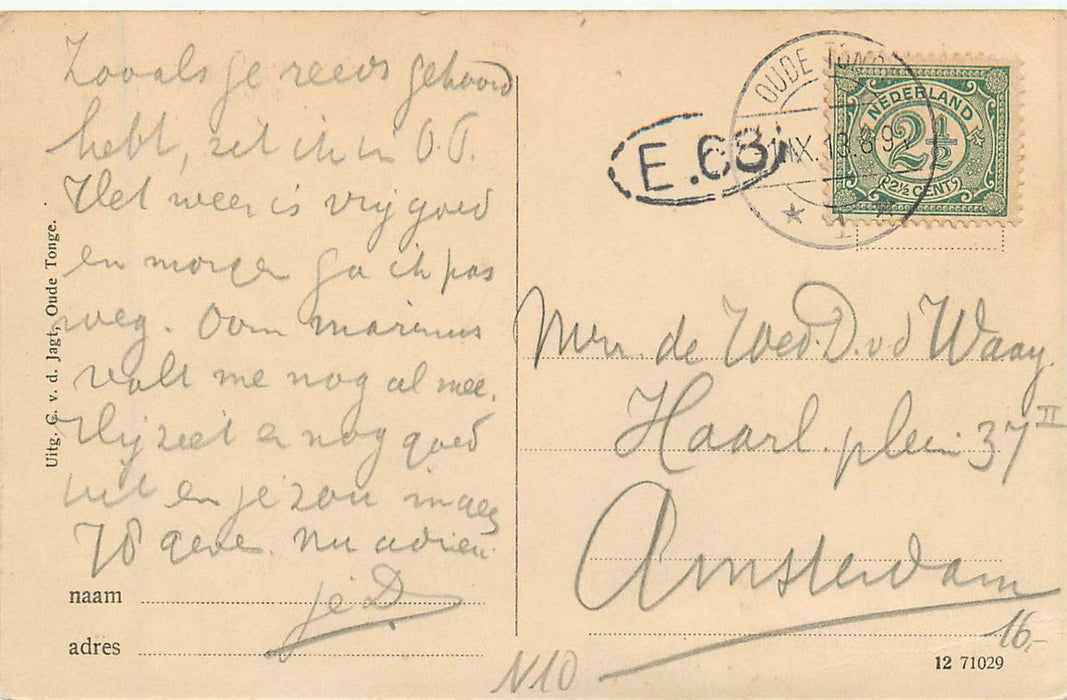 Zooals je reeds gehoord
hebt, zit ik in O.T.
Het weer is vrij goed
en morgen ga ik pas
weg. Oom Marinus
valt me nog al mee.
Hij ziet er nog goed
uit en je zou maar
78 geve. Nu adieu.
je D
naam
adres
Uitg. C. v. d. Jagt, Oude Tonge.
E.68
OUDE TONGE
IX.13.8
1
NEDERLAND
2½
2½ CENT
de Wed. D. v d Waay
Haarl. plein 37 II
Amsterdam
16,-
N10
12 71029